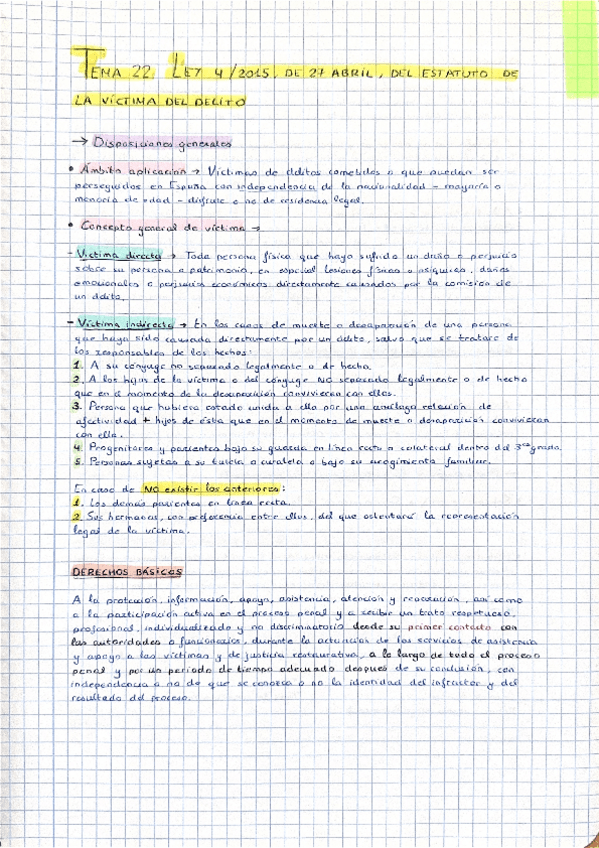 TEMA 22. LEY 4/2015, DE 27 ABRIL, DEL ESTATUTO DE
LA VÍCTIMA DEL DELITO
→ Disposiciones generales
• Ámbito aplicación → Víctimas de delitos cometidos o que puedan ser
perseguidos en España con independencia de la nacionalidad - mayoría o
menoría de edad - disfrute o no de residencia legal.
• Concepto general de víctima →
- Víctima directa → Toda persona física que haya sufrido un daño o perjuicio
sobre su persona o patrimonio, en especial lesiones físicas o psíquicas, daños
emocionales o perjuicios económicos directamente causados por la comisión de
un delito.
- Víctima indirecta → En los casos de muerte o desaparición de una persona
que haya sido causada directamente por un delito, salvo que se tratare de
los responsables de los hechos:
1. A su cónyuge no separado legalmente o de hecho.
2. A los hijos de la víctima o del cónyuge NO separado legalmente o de hecho
que en el momento de la desaparición convivieran con ellos.
3. Persona que hubiera estado unida a ella por una análoga relación de
afectividad + hijos de ésta que en el momento de muerte o desaparición convivieran
con ella.
4. Progenitores y parientes bajo su guarda en línea recta o colateral dentro del 3er grado.
5. Personas sujetas a su tutela o curatela o bajo su acogimiento familiar.
En caso de NO existir los anteriores:
1. Los demás parientes en línea recta.
2. Sus hermanos, con preferencia entre ellos, del que ostentara la representación
legal de la víctima.
DERECHOS BÁSICOS
A la protección, información, apoyo, asistencia, atención y reparación, así como
a la participación activa en el proceso penal y a recibir un trato respetuoso,
profesional, individualizado y no discriminatorio desde su primer contacto con
las autoridades o funcionarios, durante la actuación de los servicios de asistencia
y apoyo a las víctimas y de justicia restaurativa, a lo largo de todo el proceso
penal y por un período de tiempo adecuado después de su conclusión, con
independencia o no de que se conozca o no la identidad del infractor y del
resultado del proceso.